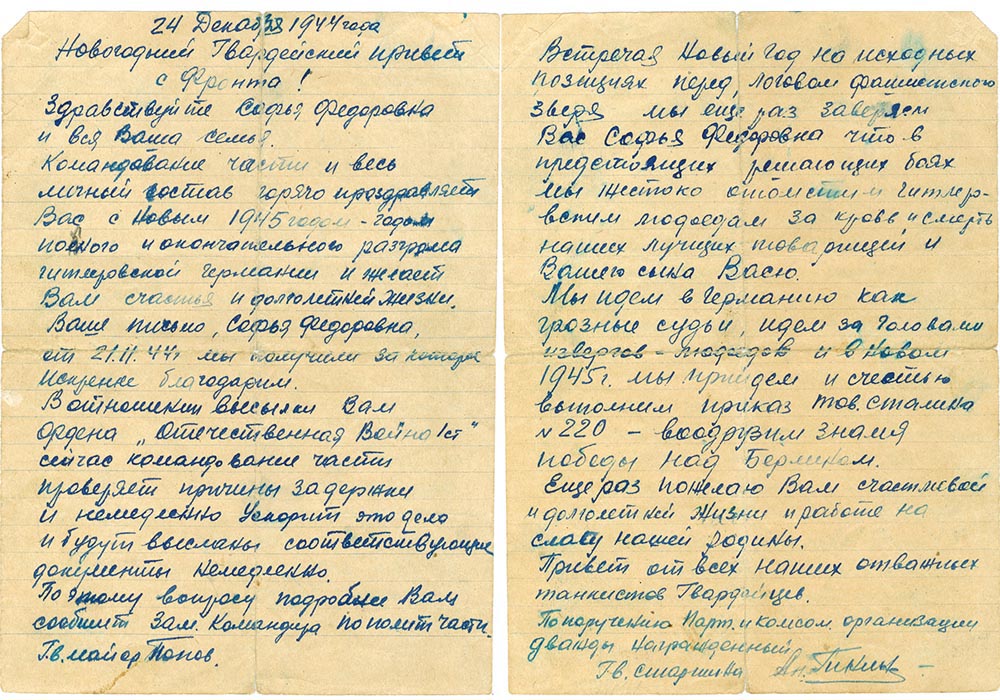 24 Декабря 1944 года
Новогодний Гвардейский привет
с Фронта!
Здравствуйте Софья Федоровна
и вся Ваша семья.
Командование части и весь
личный состав горячо поздравляет
Вас с новым 1945 годом - годом
полного и окончательного разгрома
гитлеровской германии и желает
Вам счастья и долголетней жизни.
Ваше письмо, Софья Федоровна,
от 21.11.44г мы получили за которое
искренне благодарим.
В отношении высылки Вам
ордена „Отечественная Война Iст"
сейчас командование части
проверяет причины задержки
и немедленно ускорит это дело
и будут высланы соответствующие
документы немедленно.
По этому вопросу подробнее Вам
сообщит Зам. Командира по политчасти
Гв. майор Попов.
Встречая Новый Год на исходных
позициях перед логовом фашистского
зверя мы еще раз заверяем
Вас Софья Федоровна что в
предстоящих решающих боях
мы жестоко отомстим гитлер-
овским людоедам за кровь и смерть
наших лучших товарищей и
Вашего сына Васю.
Мы идем в Германию как
грозные судьи, идем за головами
извергов - людоедов и в новом
1945г. мы придем и с честью
выполним приказ тов. Сталина
N 220 - воодрузим знамя
победы над Берлином.
Еще раз пожелаю Вам счастливой
и долголетней жизни и работе на
славу нашей родины.
Привет от всех наших отважных
танкистов Гвардейцев.
По поручению Парт. и комсом. организации
дважды награжденный
Гв. старшина